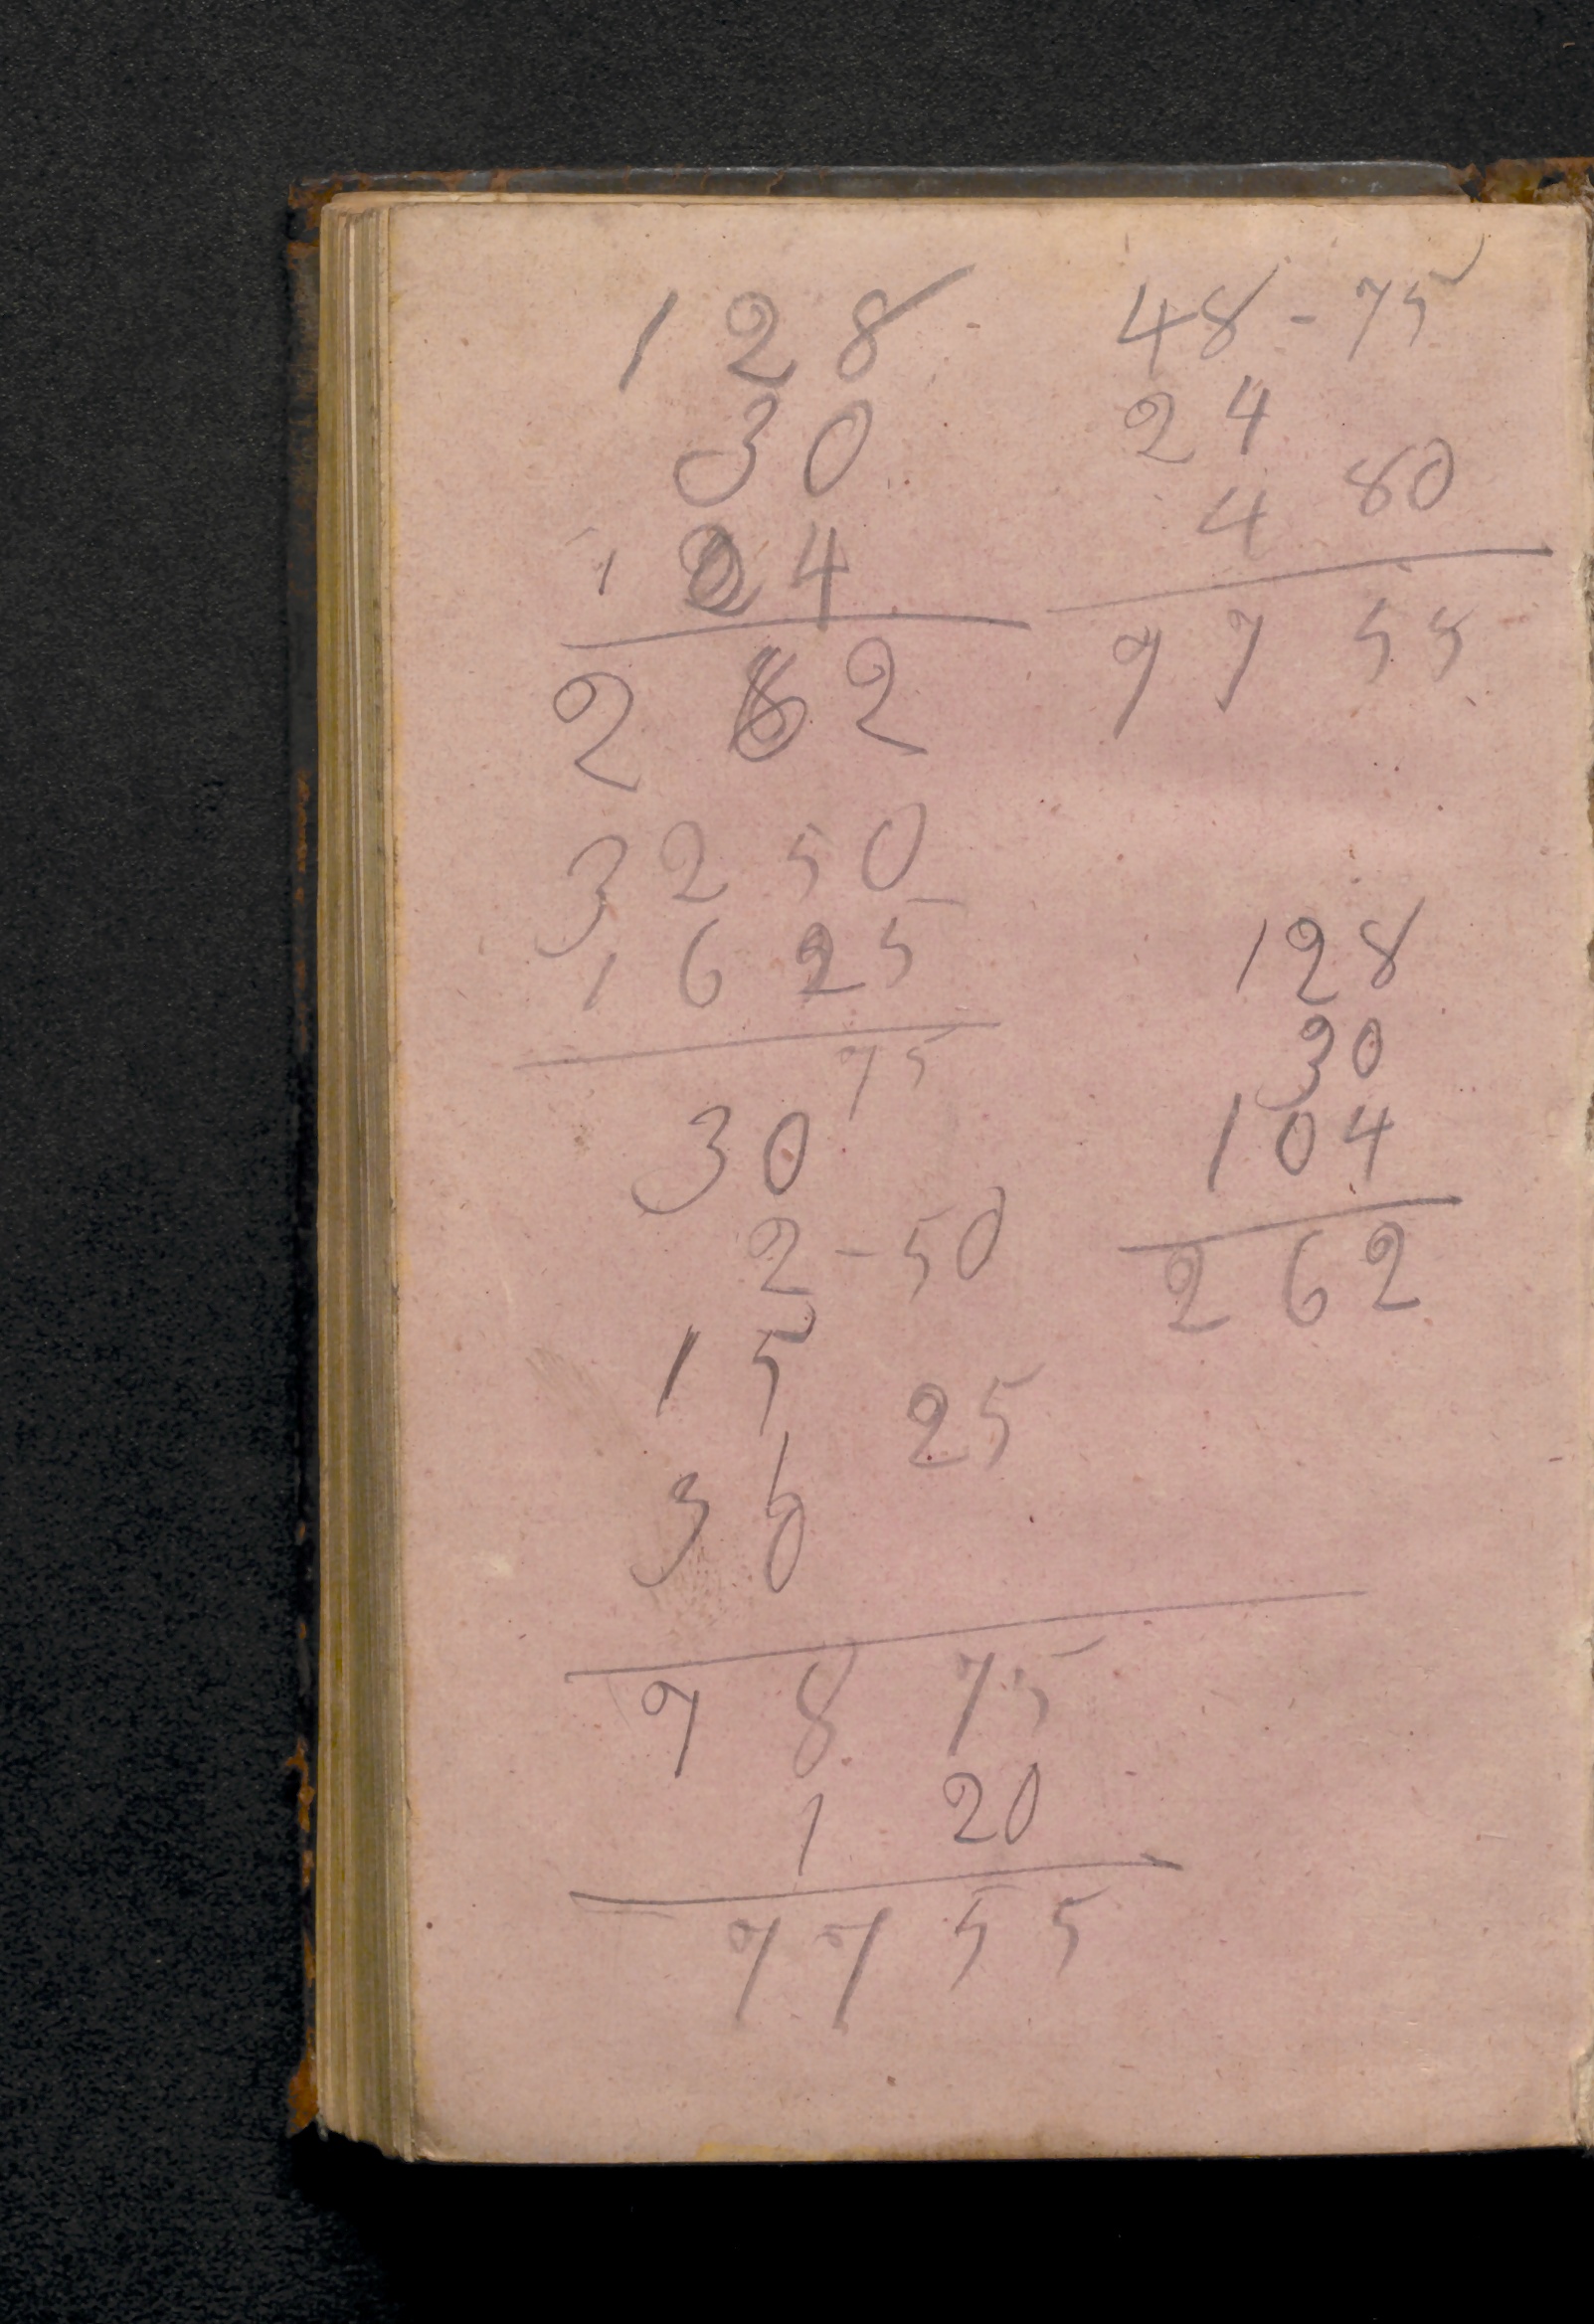 128
30
104
262
3250
1625
75
30
2-50
15
25
36
78 75
1 20
77 55
48-75
24
4 80
77 55
128
30
104
262